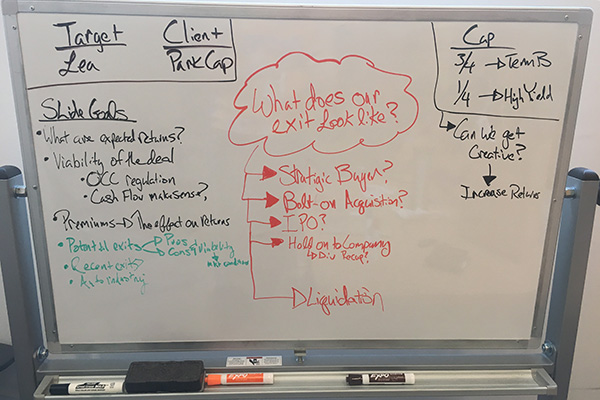 Target
Lea
Client
Park Cap
Slide Goals
• What are expected returns?
• Viability of the deal
• OCC regulation
• Cash Flow make sense?
• Premiums → The effect on returns
• Potential exits → Pros
→ Cons → Viability
• Recent exits
• Auto industry
What does our
exit look like?
Stratigic Buyer?
Bolt-on Acquistion?
IPO?
Hold on to Company
→ Div Recap?
→ Liquidation
Cap
3/4 → Term B
1/4 → High Yield
Can we get
Creative?
Increase Returns
EXPO
EXPO